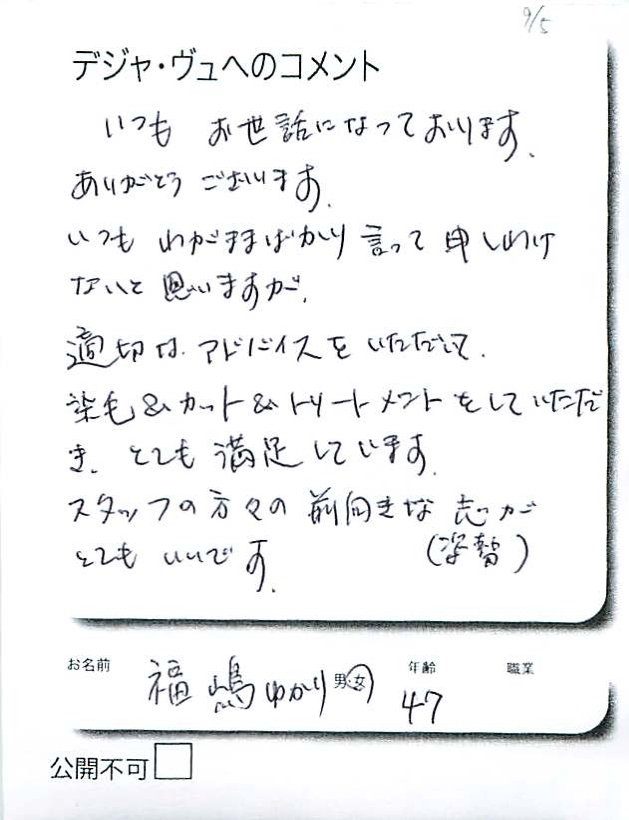 9/5
デジャ・ヴュへのコメント
いつも お世話になっております.
ありがとう ございます.
いつも わがままばかり 言って 申しわけ
ないと 思いますが,
適切な アドバイスを いただいて.
染毛&カット&トリートメントをしていただ
き. とても 満足しています.
スタッフの方々の 前向きな 志が
(姿勢)
とても いいです.
お名前 福嶋ゆかり 男・女 年齢 47 職業
公開不可